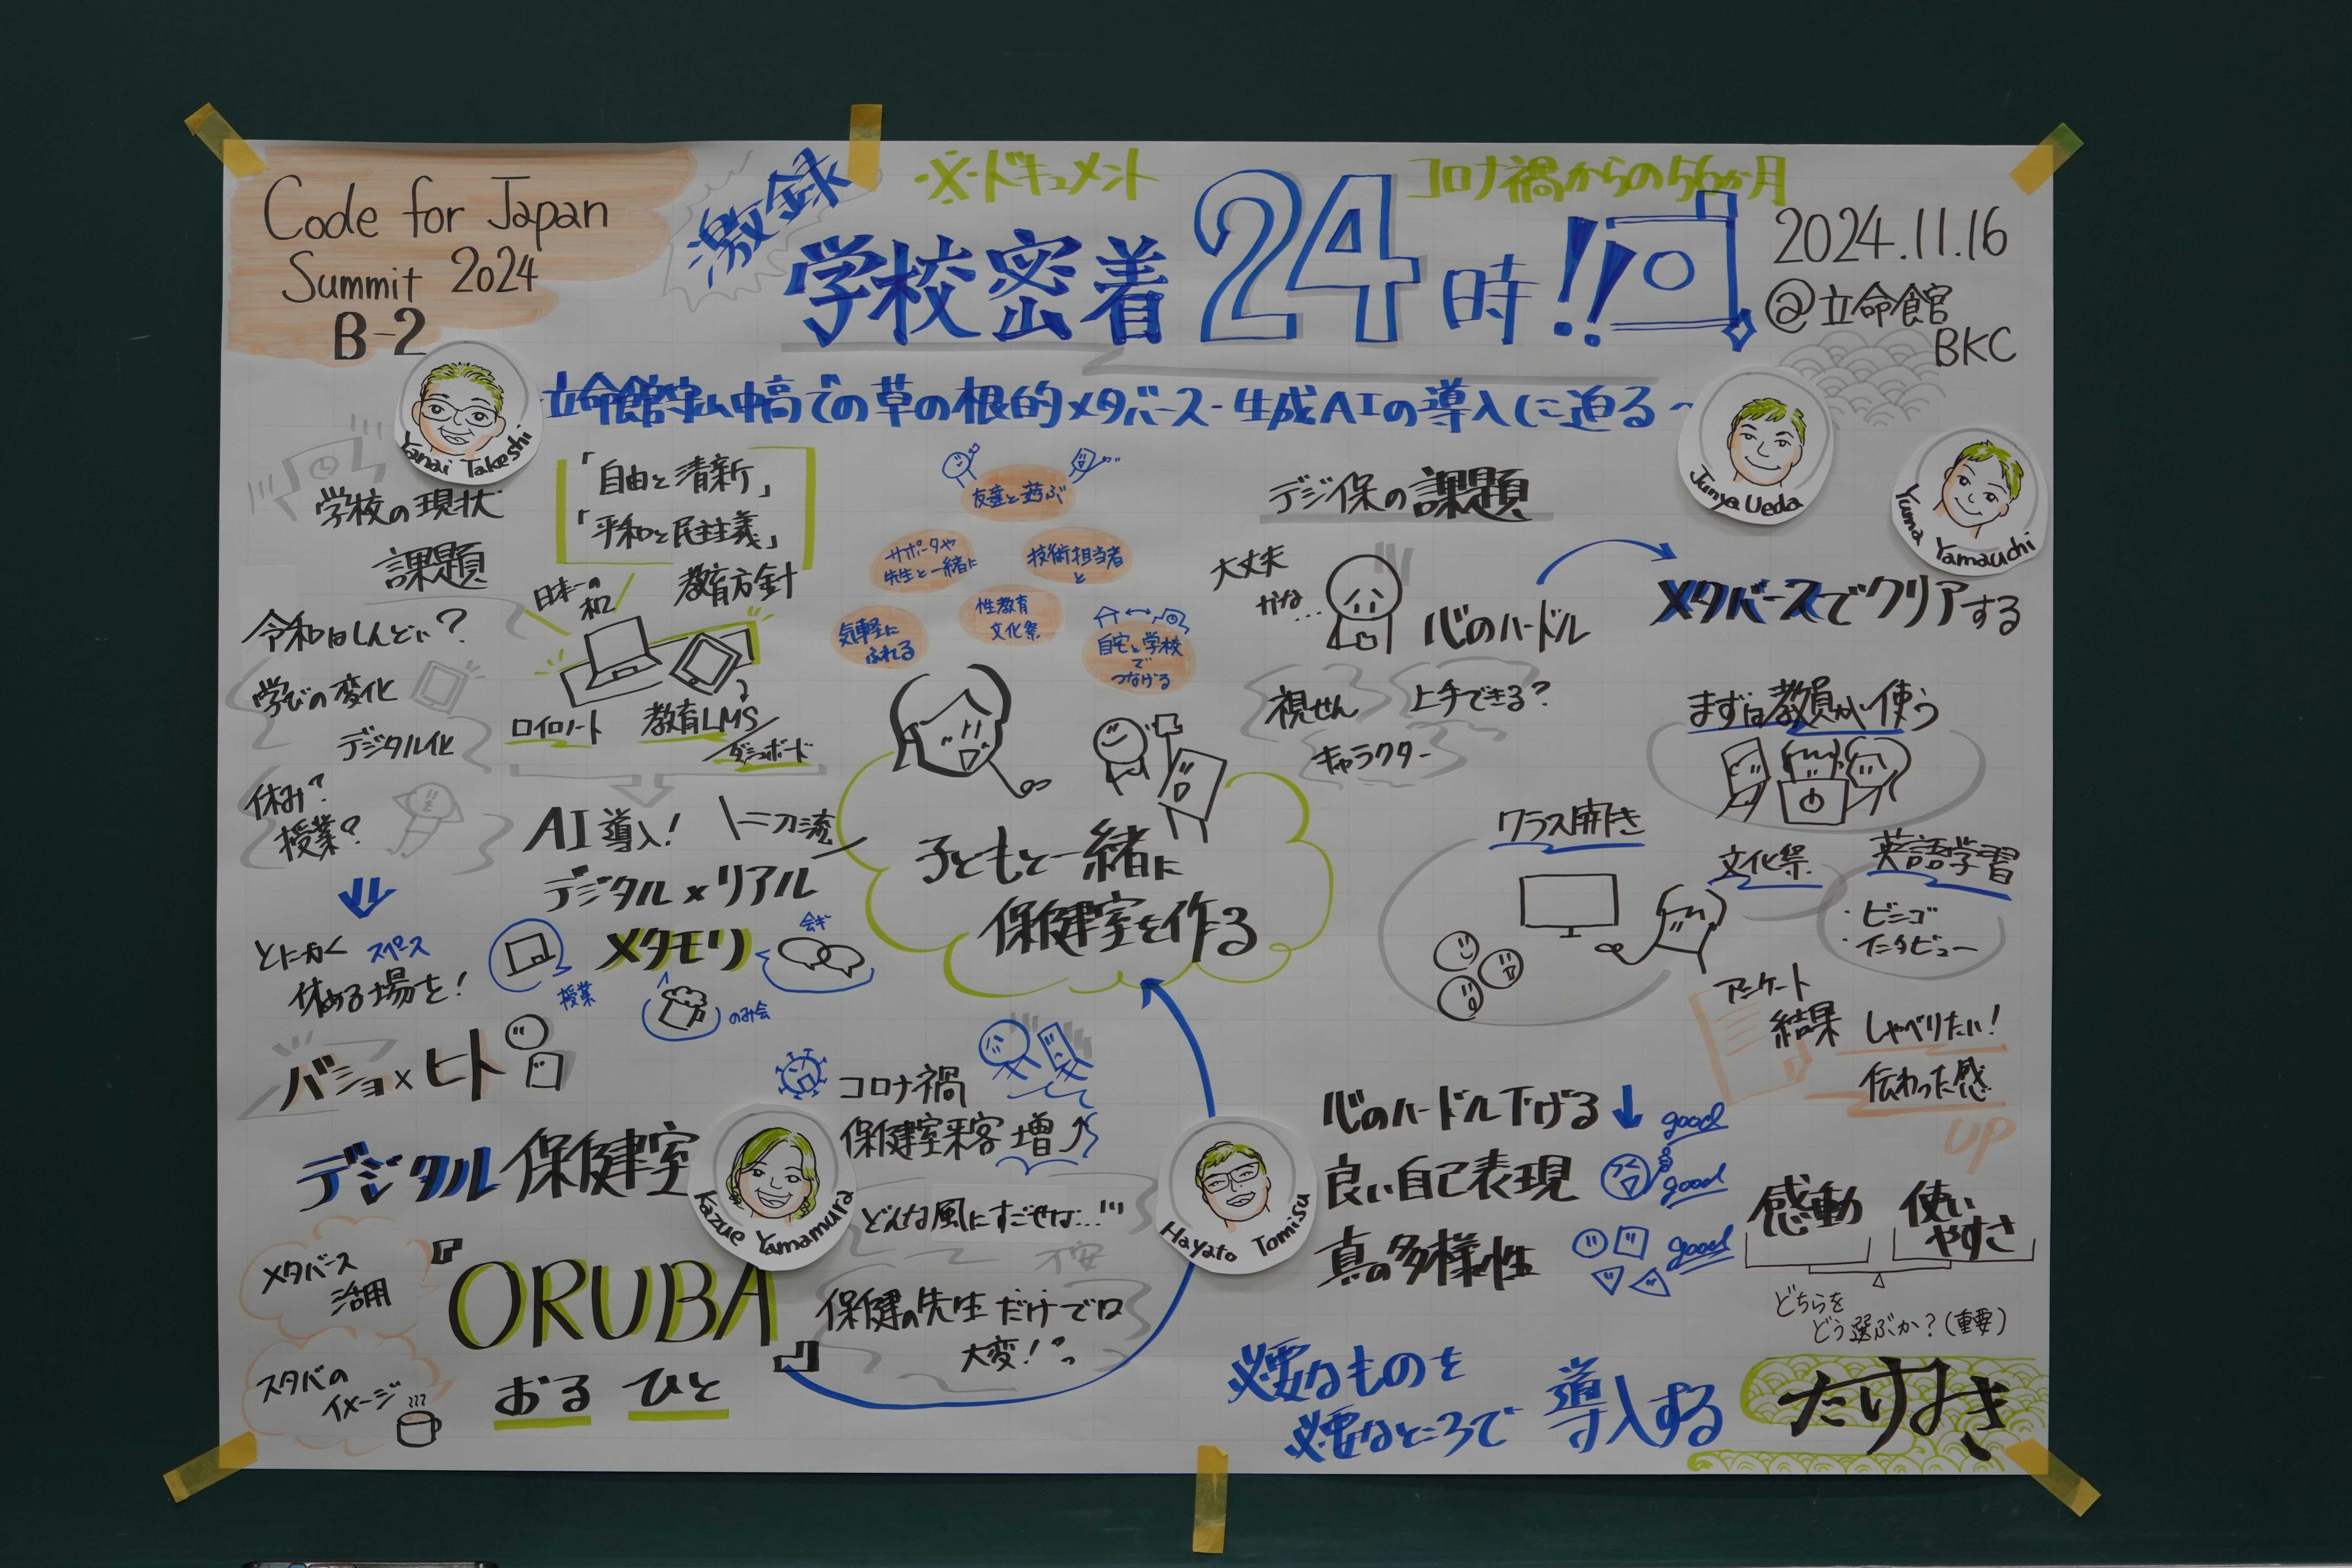 Code for Japan
Summit 2024
B-2
激録
※ドキュメント
コロナ禍からの56か月
学校密着24時!!
2024.11.16
@立命館
BKC
立命館守山中高での草の根的メタバース・生成AIの導入に迫る〜
Yanai Takeshi
Junya Ueda
Yuma Yamauchi
学校の現状
課題
令和はしんどい?
学びの変化
デジタル化
休み?
授業?
とにかく スペース
休める場を!
バショ×ヒト
デジタル保健室
「自由と清新」
「平和と民主義」
教育方針
日本一の
机
ロイロノート
教育LMS
ダッシュボード
AI導入! 二刀流
デジタル×リアル
メタモリ
授業
会ぎ
のみ会
友達と遊ぶ
サポータや
先生と一緒に
技術担当者
と
気軽に
ふれる
性教育
文化祭
自宅と学校
で
つなげる
子どもと一緒に
保健室を作る
コロナ禍
保健室来客増
Kazue Yamamura
どんな風にすごせば…
不安
保健の先生だけでは
大変!
メタバース
活用
スタバの
イメージ
『ORUBA』
おる ひと
Hayato Tomisu
デジ保の課題
大丈夫
かな…
心のハードル
メタバースでクリアする
視せん
上手できる?
キャラクター
まずは教員が使う
クラス開き
文化祭
英語学習
・ビンゴ
・インタビュー
アンケート
結果
しゃべりたい!
伝わった感
UP
心のハードル下げる good
良い自己表現 good
真の多様性 good
感動
使い
やすさ
どちらを
どう選ぶか?(重要)
必要なものを
必要なところで 導入する